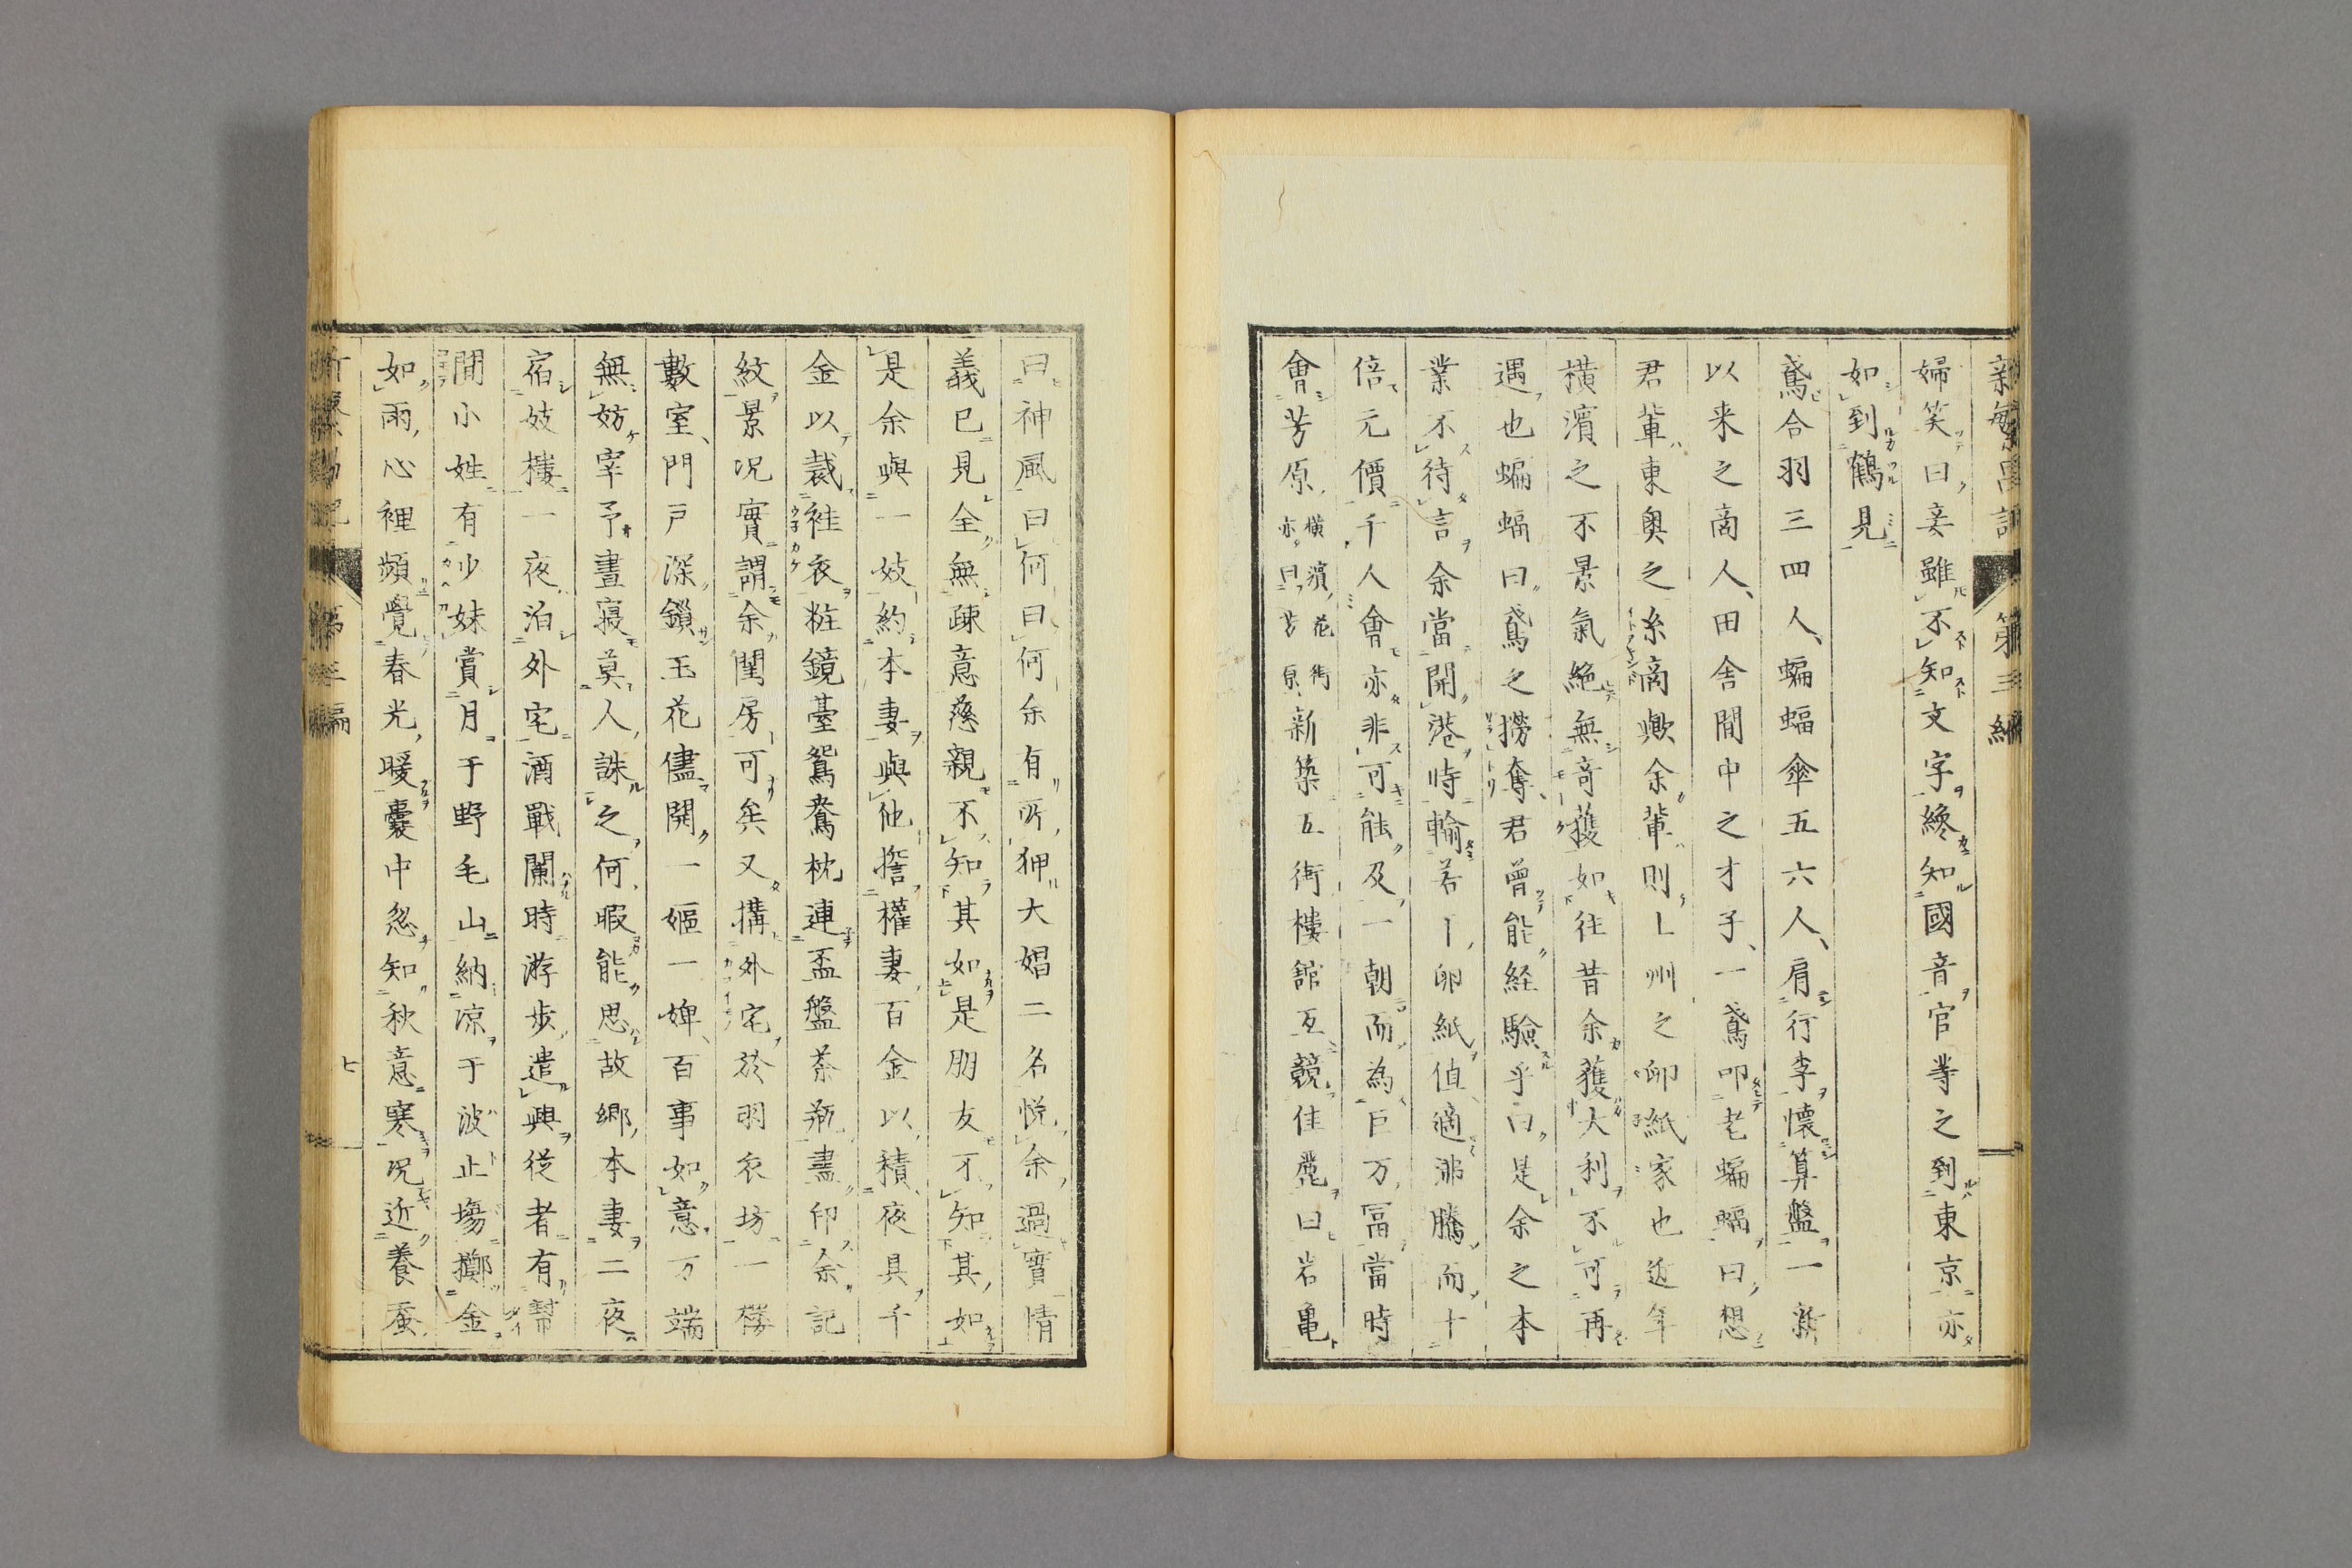 新繁昌記 第三編
婦笑曰妾雖不知文字纔知國音官等之到東京亦
如到鶴見
鳶合羽三四人、蝙蝠傘五六人、肩行李懷算盤一新
以来之商人、田舎間中之才子、一鳶叩老蝙蝠曰想
君輩東奥之糸商歟余輩則上州之卵紙家也近年
横濱之不景氣絶無竒獲如往昔余獲大利不可再
遇也蝙蝠曰鳶之撈奪君曾能経驗乎曰是余之本
業不待言余當開港時輸若干卵紙值適沸騰而十
倍元價千人會亦非可能及一朝而為巨万冨當時
會芳原横濱花街亦曰芳原新築五街樓舘互競佳麗曰岩亀
曰神風曰何曰何余有所狎大娼二名悦余過實情
義已見全無疎意慈親不知其如是朋友不知其如
是余與一妓約本妻與他揸權妻百金以積夜具千
金以裁裲衣粧鏡臺鴛鴦枕連盃盤茶瓶盡印余記
紋景况實謂余閨房可矣又搆外宅於羽衣坊一樓
數室、門戸深鎖玉花儘開一嫗一婢、百事如意万端
無妨宰予晝寝莫人誅之何暇能思故郷本妻二夜
宿妓樓一夜泊外宅酒戰闌時游歩遣興従者有幇
間小姓有少妹賞月于野毛山納凉于波止場擲金
如雨心裡頻覺春光暖嚢中忽知秋意寒况近養蚕
第三編 七